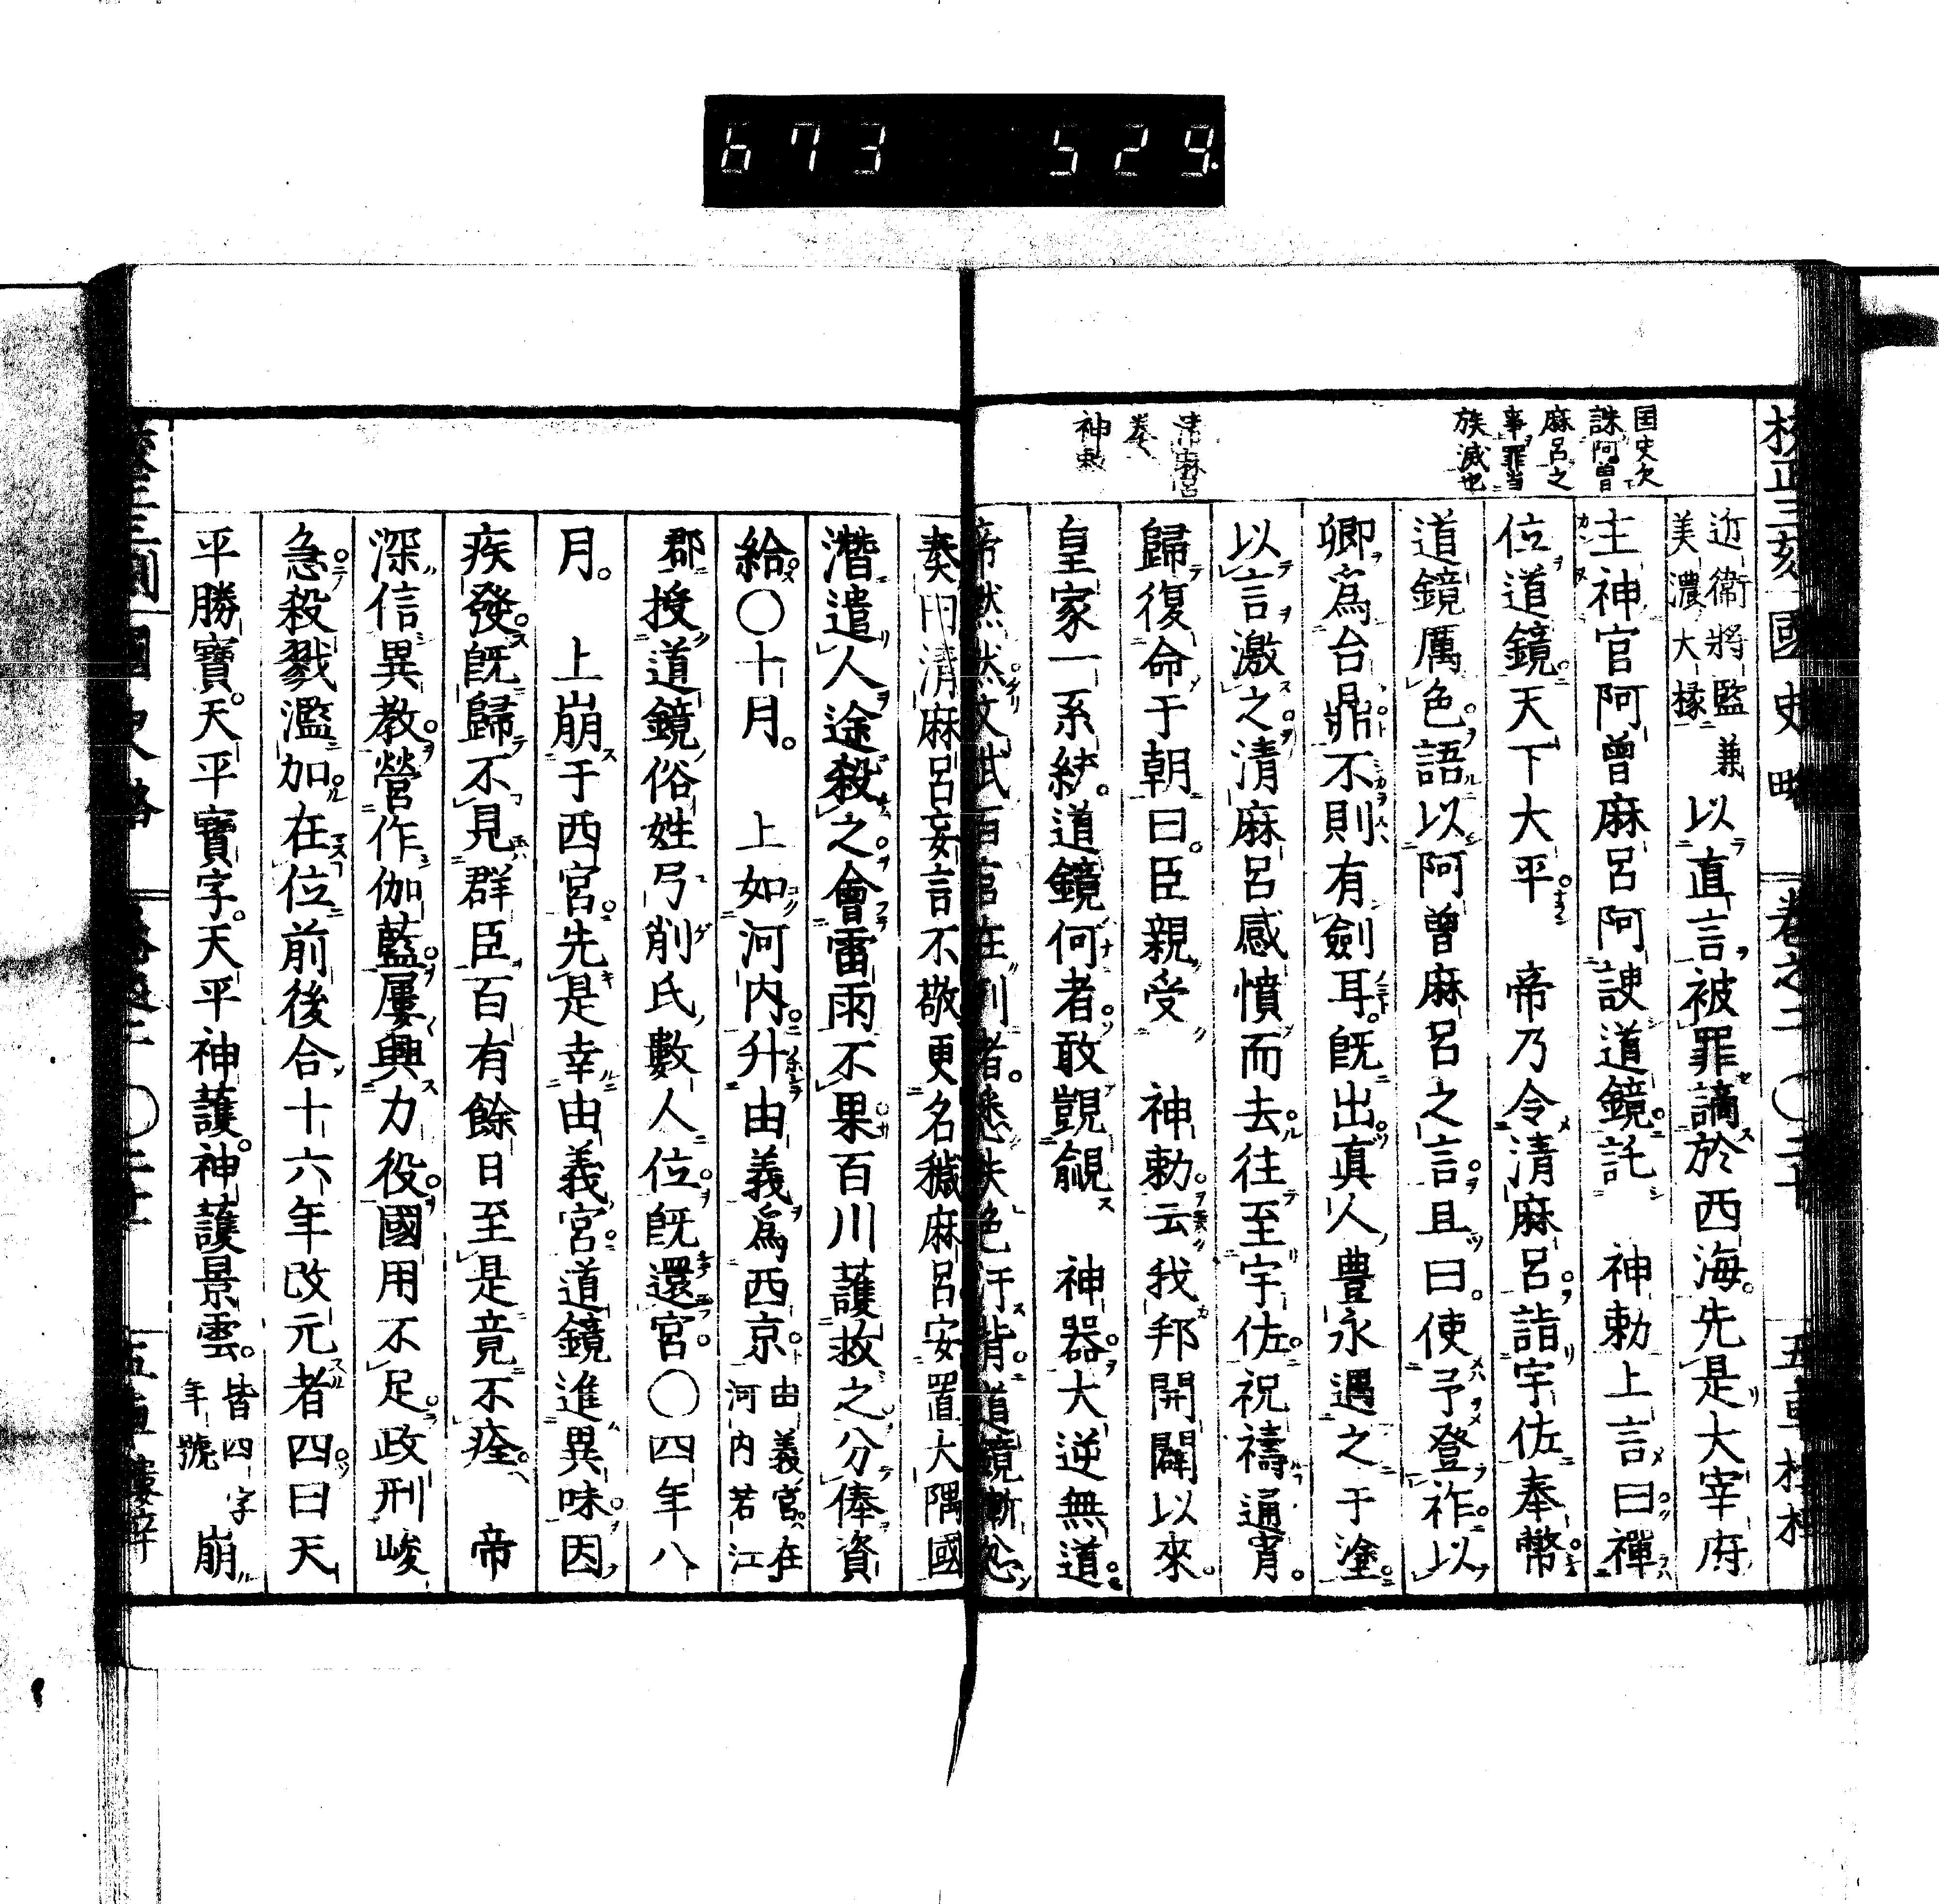 673 529
校正三刻 國史略 卷之二 〇二十
国史欠
誅阿曽
麻呂之
事罪当
族滅也
清麻呂
奉
神勅
近衛將監兼
美濃大掾
以直言被罪謫於西海。先是大宰府
主神官阿曽麻呂阿諛道鏡託 神勅上言曰禪
位道鏡天下大平 帝乃令清麻呂詣宇佐奉幣
道鏡厲色語以阿曽麻呂之言且曰。使予登祚以
卿爲台鼎不則有劍耳。既出真人豊永遇之于塗
以言激之清麻呂感憤而去往至宇佐祝禱通宵。
歸復命于朝曰。臣親受 神勅云我邦開闢以來。
皇家一系統。道鏡何者敢覬覦 神器大逆無道。
帝黙然文武百官在列者。悉失色汗背道鏡慚忿
奏問清麻呂妄言不敬更名穢麻呂安置大隅國
潛遣人途殺之會雷雨不果百川護救之分俸資
給〇十月。 上如河內升由義爲西京
由義宮在
河内若江
郡授道鏡俗姓弓削氏數人位既還宮。〇四年八
月。 上崩于西宮先是幸由義宮道鏡進異味因
疾發既歸不見群臣百有餘日至是竟不痊 帝
深信異教營作伽藍屢興力役國用不足政刑峻
急殺戮濫加在位前後合十六年改元者四曰天
平勝寶。天平寶字。天平神護。神護景雲。
皆四字
年號
崩
國史略